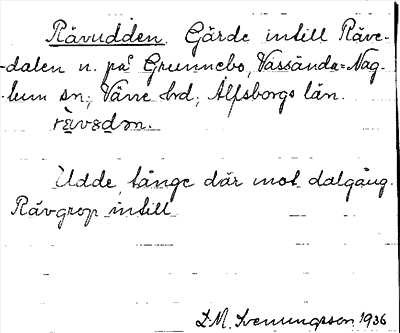 Rävudden. Gärde intill Räve-
-dalen n. på Grunnebo, Vassända=Nag-
-lum sn; Väne hd; Älfsborgs län.
Udde tänge där mot dalgång.
Rävgrop intill
D. M. Svenungsson 1936